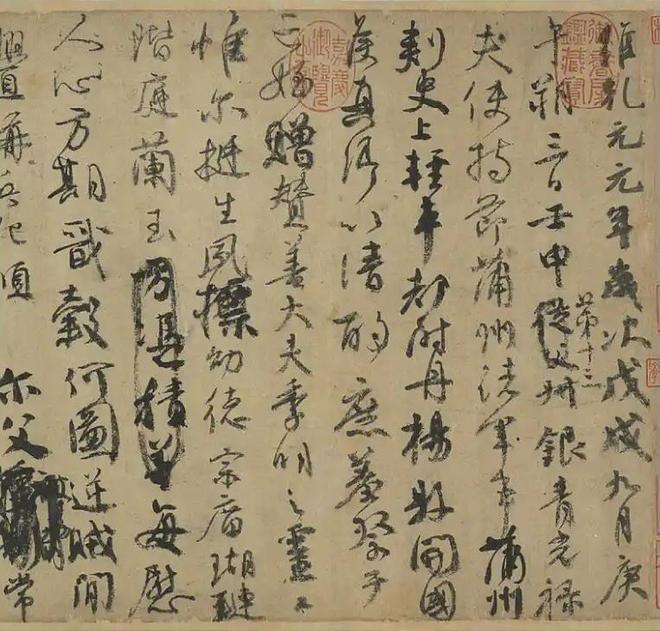 維乾元元年歲次戊戌九月庚
午朔三日壬申第十三從父銀青光祿
夫使持節蒲州諸軍事蒲州
刺史上輕車都尉丹楊縣開國
侯真卿以清酌庶羞祭于
亡姪贈贊善大夫季明之靈曰
惟爾挺生夙標幼德宗廟瑚璉
階庭蘭玉每慰
人心方期戩穀何圖逆賊閒
釁稱兵犯順爾父常